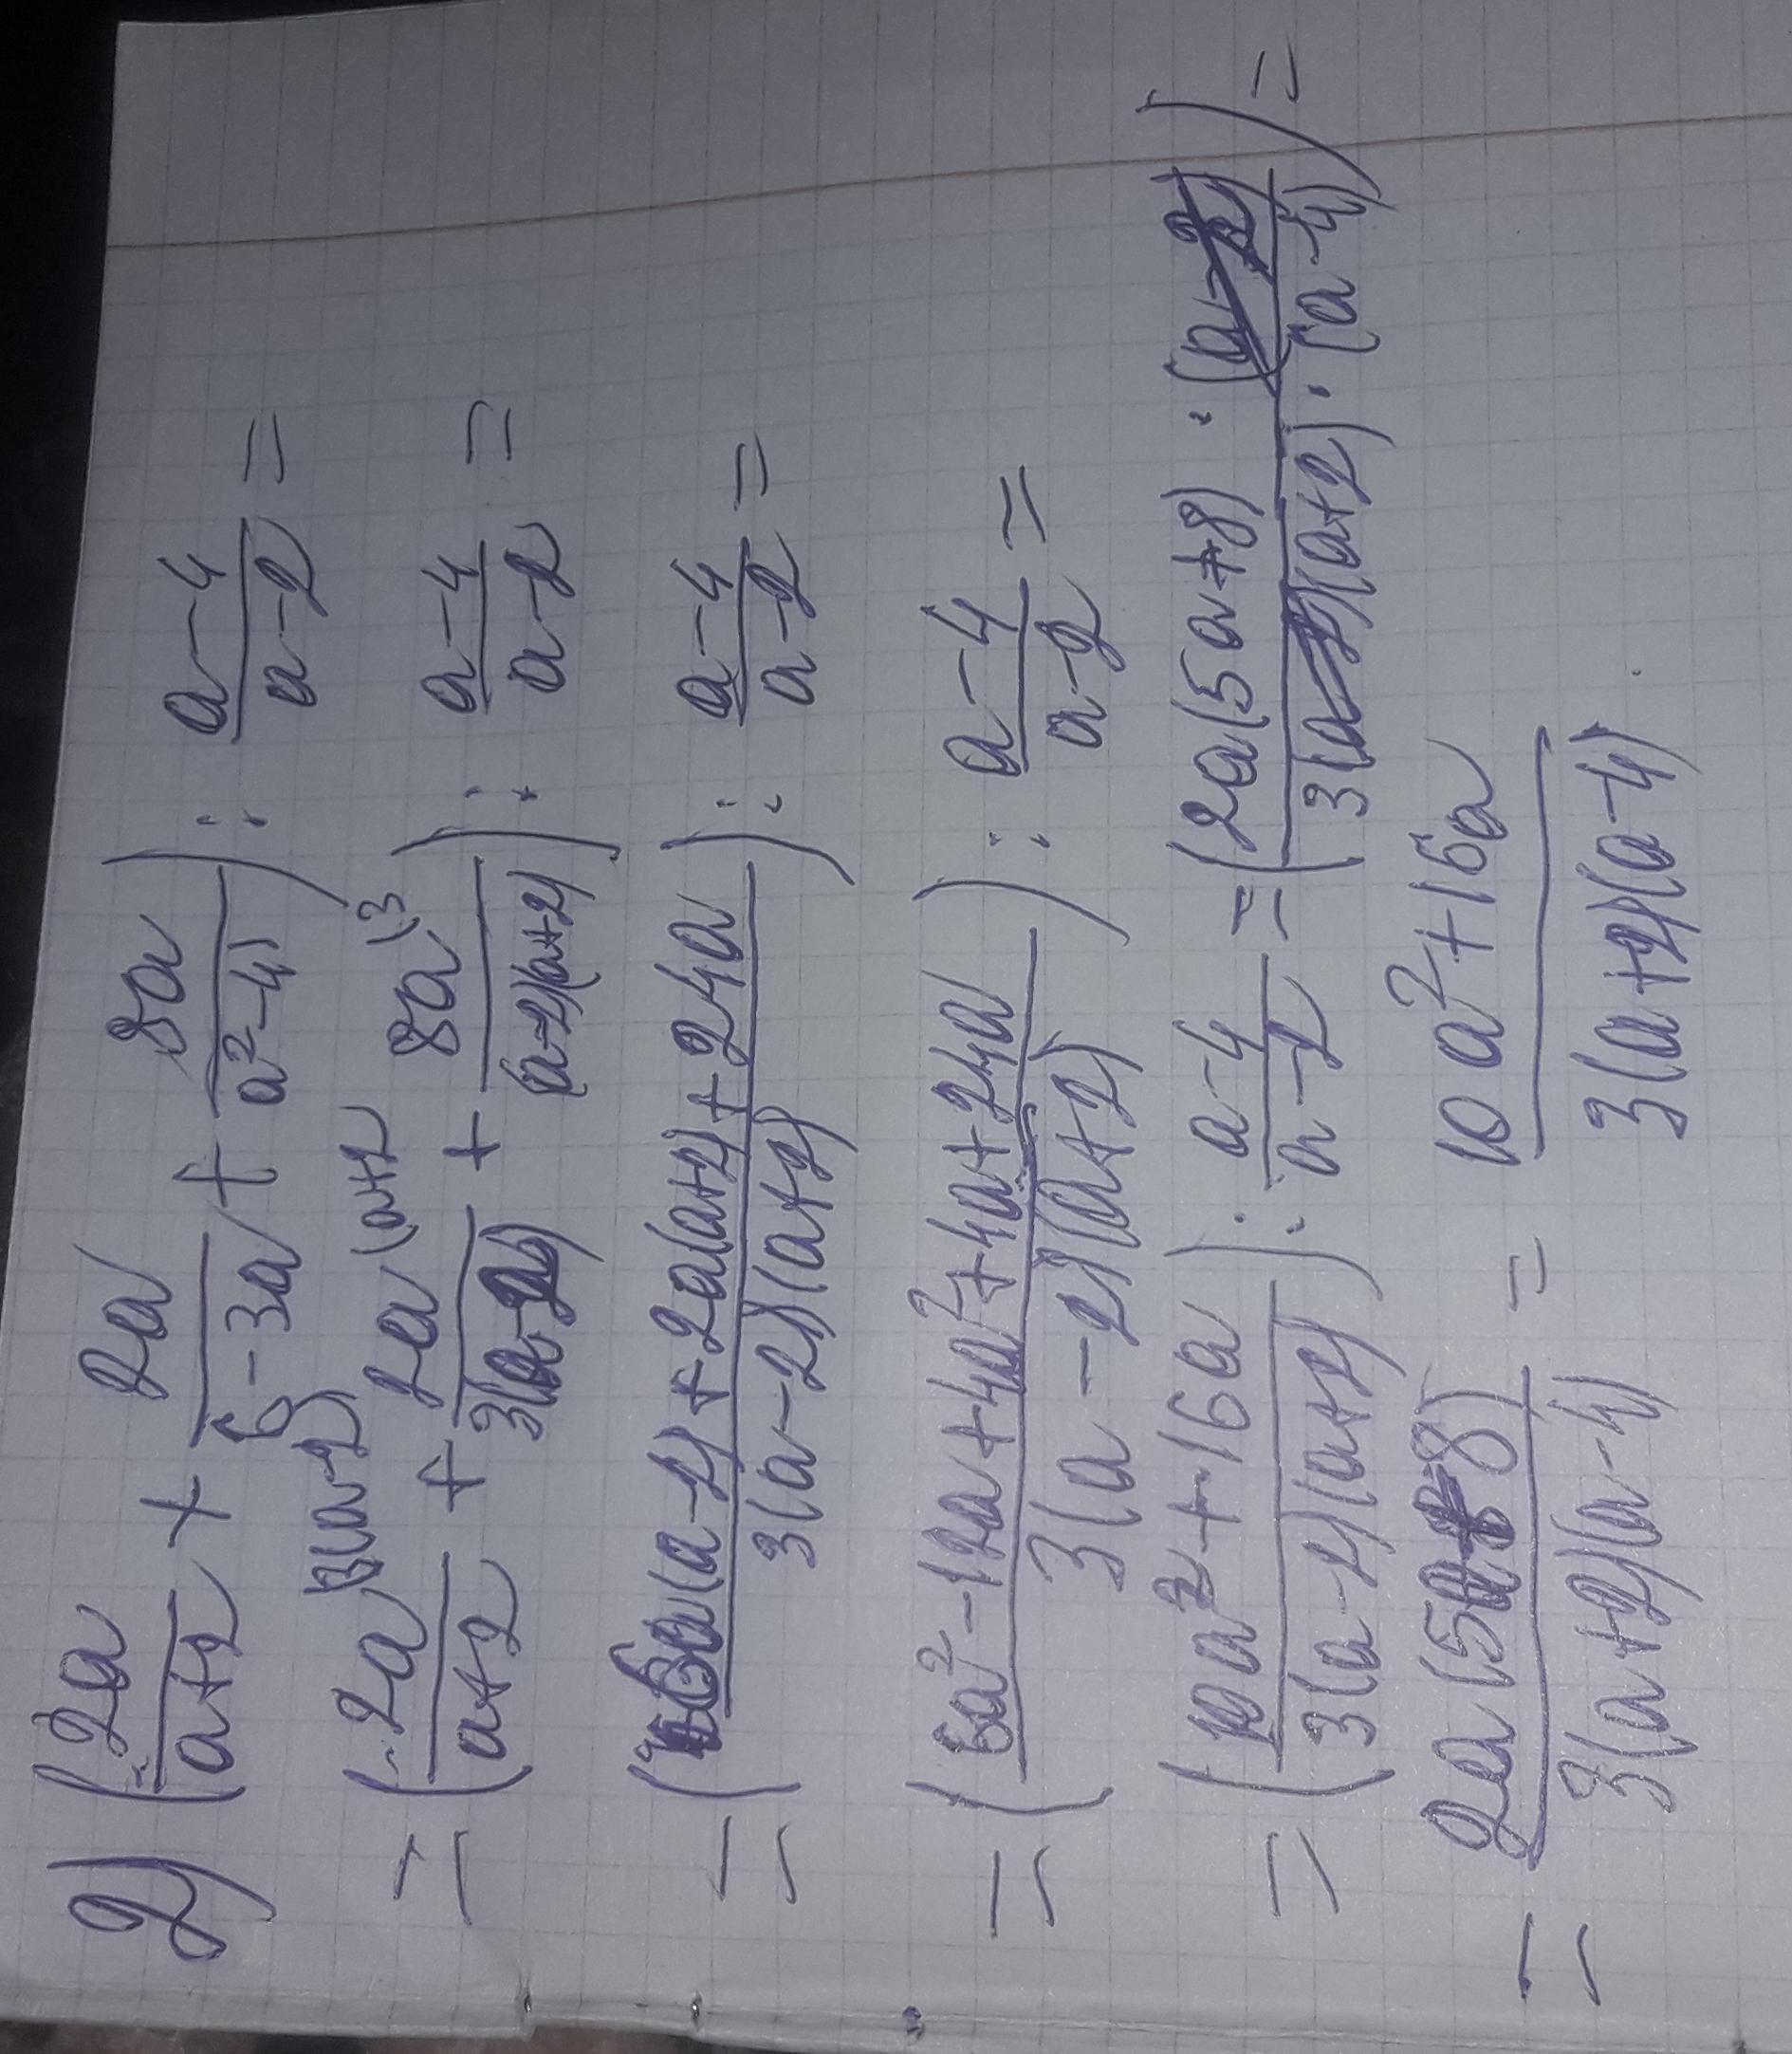 2) (2a/(a+2) + 2a/(6-3a) + 8a/(a²-4)) : (a-4)/(a-2) =
= (2a\3(a-2)/(a+2) + 2a\(a+2/3(a-2) + 8a\3/(a-2)(a+2)) : (a-4)/(a-2) =
= (6a(a-2)+2a(a+2)+24a/3(a-2)(a+2)) : (a-4)/(a-2) =
= (6a²-12a+4a²+4a+24a/3(a-2)(a+2)) : (a-4)/(a-2) =
= (10a²+16a/3(a-2)(a+2)) : (a-4)/(a-2) = (2a(5a+8)·(a-2)/3(a-2)(a+2)·(a-4)) =
= 2a(5a+8)/3(a+2)(a-4) = 10a²+16a/3(a+2)(a-4)